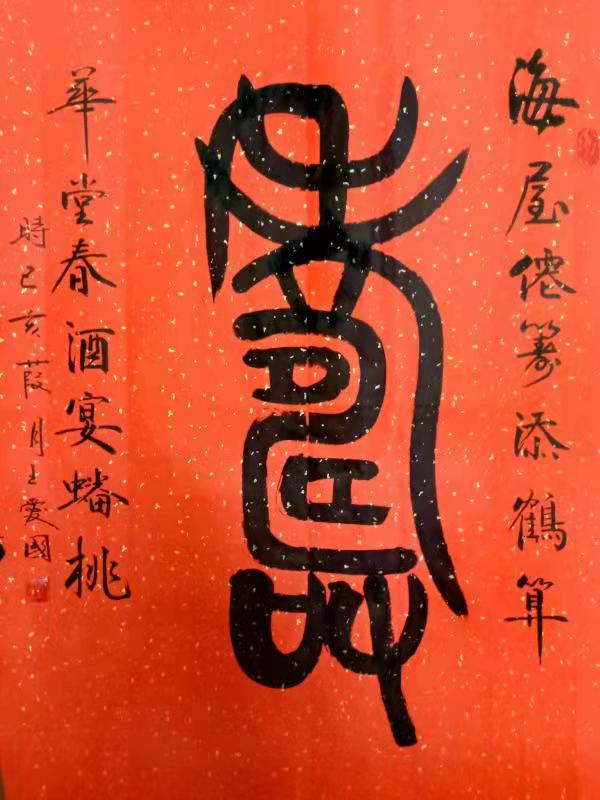 海屋僊籌添鶴算
壽
華堂春酒宴蟠桃
時己亥葭月王愛國